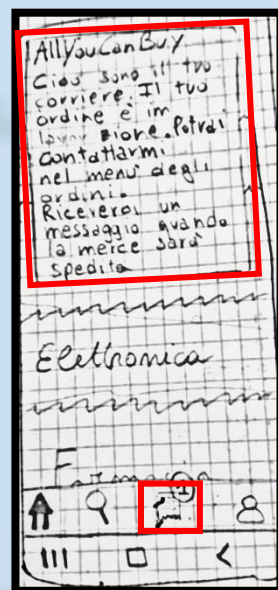 AllYouCanBuy
Ciao sono il tuo
corriere. Il tuo
ordine è in
lavorazione. Potrai
contattarmi
nel menù degli
ordini.
Riceverai un
messaggio quando
la merce sarà
spedita
Elettronica
Farmacia
1